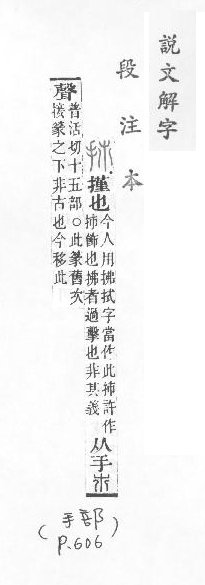 說文解字
段注本
也今人用拂拭字當作此抪許作
抪飾也拂者過擊也非其義
从手𣎵
聲普活切十五部○此篆舊次
接篆之下非古也今移此
(手部)
P.606